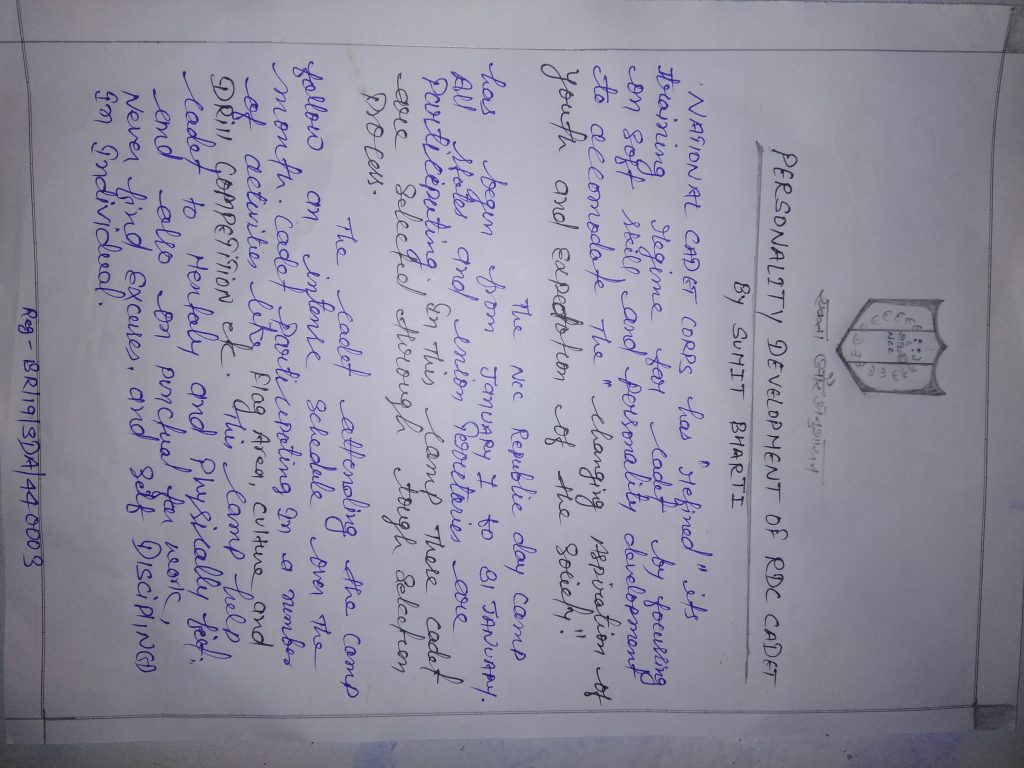 एकता और अनुशासन
NCC
PERSONALITY DEVELOPMENT OF RDC CADET
By SUMIT BHARTI
NATIONAL CADET CORPS has "refind" its
training regime for cadet by focusing
on soft skill, and personality development
to accomodate The "changing Aspiration of
youth and expectation of the society".
The NCC Republic day camp
has begin from January 1 to 31 JANUARY.
All states and union Terretories are
Participating In this camp These cadet
are selected through tough selection
process.
The cadet attending the camp
follow an intense schedule over the
month. cadet participating In a number
of activites like Flag Area, culture and
DRill COMPETITION etc. This camp help
cadet to Mentaly and Physically fit,
and also on punctual for work,
Never find excuses, and self DISCIPLINED
In Individual.
Reg - BR/19/SDA/440003